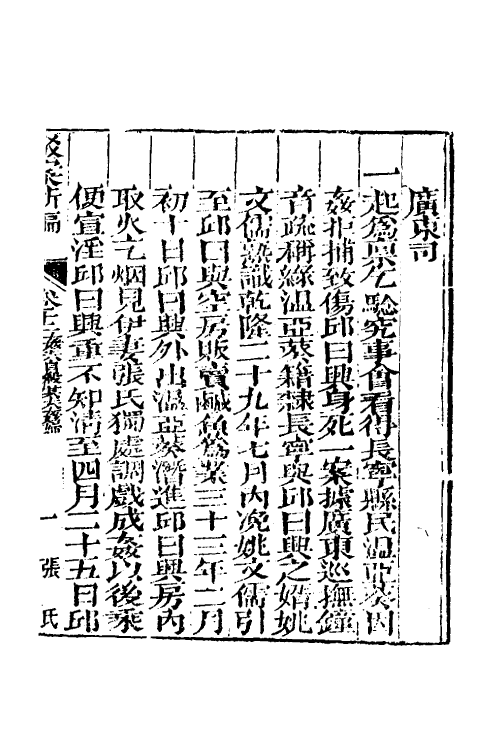 廣東司
一起爲稟乞驗究事會看得長寧縣民溫亞葵因
姦拒捕致傷邱日興身死一案據廣東巡撫鐘
音疏稱緣溫亞葵籍隸長寧與邱日興之婿姚
文儒熟識乾隆二十九年七月內凂姚文儒引
至邱日興空房販賣鹹魚爲業三十三年二月
初十日邱日興外出溫亞葵潛進邱日興房內
取火乞烟見伊妻張氏獨處調戲成姦以後乘
便宣淫邱日興並不知情至四月二十五日邱
駁案新編
卷十二
一 張氏